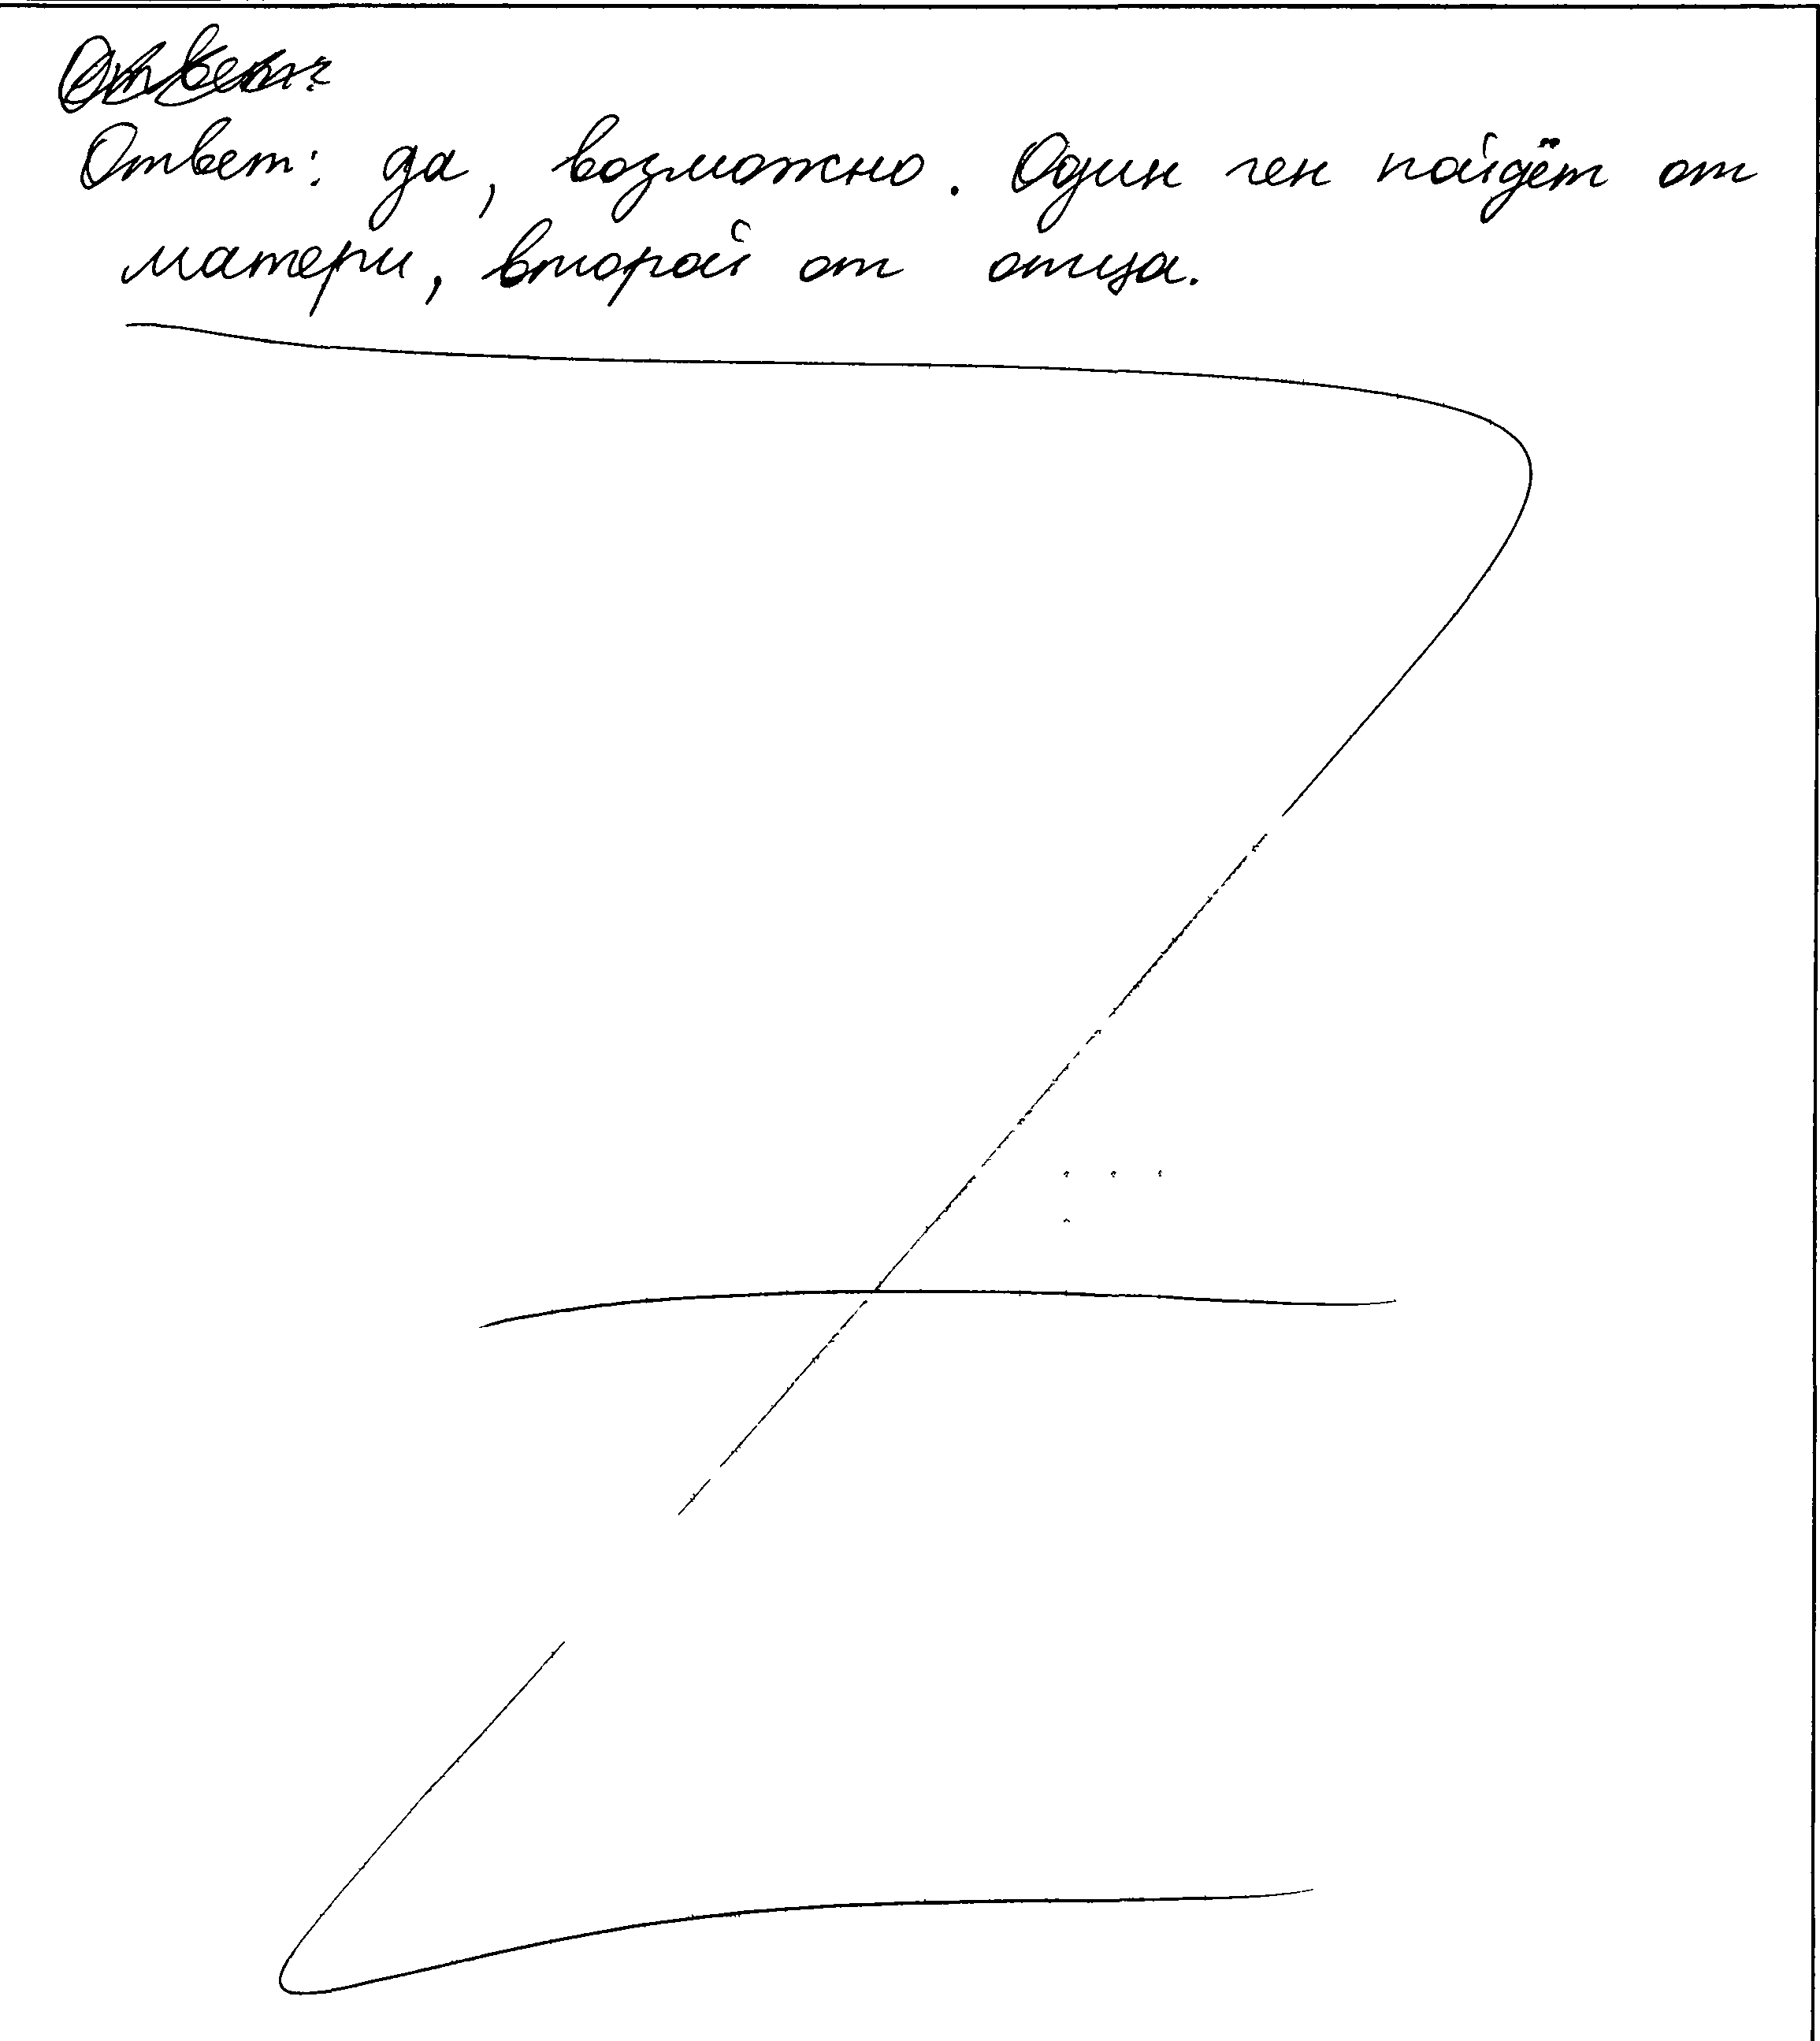 Ответ:
Ответ: да, возможно. Один ген пойдёт от
матери, второй от отца.